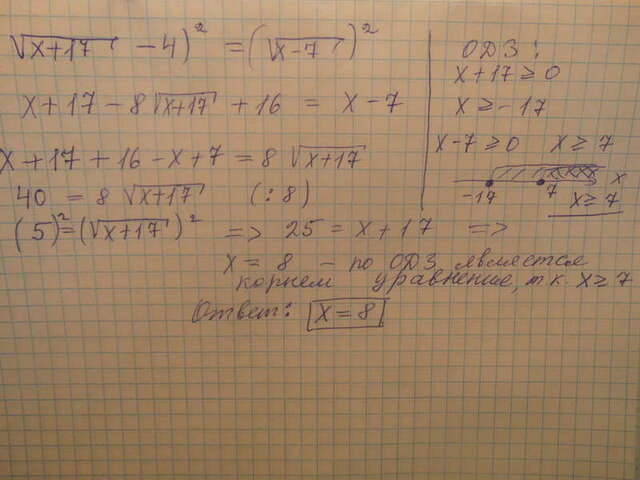 √x+17 - 4)² = (√x-7)²
x + 17 - 8√x+17 + 16 = x - 7
x + 17 + 16 - x + 7 = 8 √x+17
40 = 8 √x+17 (: 8)
(5)² = (√x+17)² => 25 = x + 17 =>
x = 8 - по ОДЗ является
корнем уравнение, т.к. x ≥ 7
Ответ: x = 8
ОДЗ:
x + 17 ≥ 0
x ≥ -17
x - 7 ≥ 0 x ≥ 7
-17 7 x
x ≥ 7